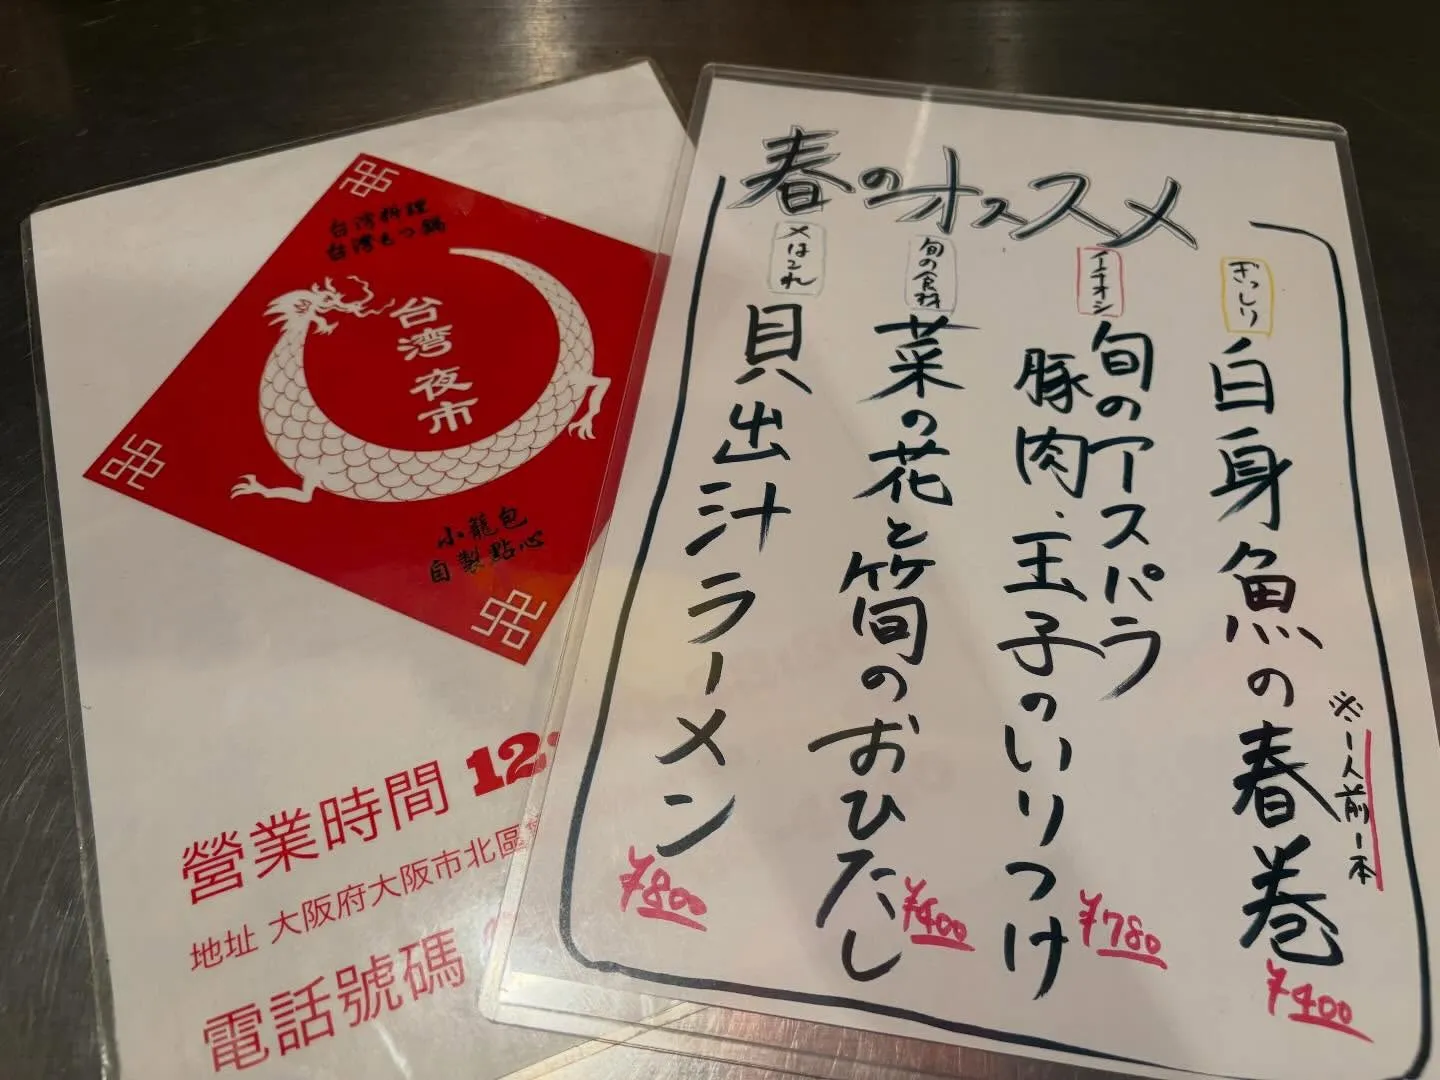 台湾料理
台湾もつ鍋
台湾
夜市
小籠包
自製點心
營業時間 12:
地址 大阪府大阪市北區
電話號碼
春のオススメ
ぎっしり
白身魚の春巻
※一人前一本
¥400
イチオシ
旬のアスパラ
豚肉、玉子のいりつけ
¥780
旬の食材
菜の花と筍のおひたし
¥400
〆はこれ
貝出汁ラーメン
¥800